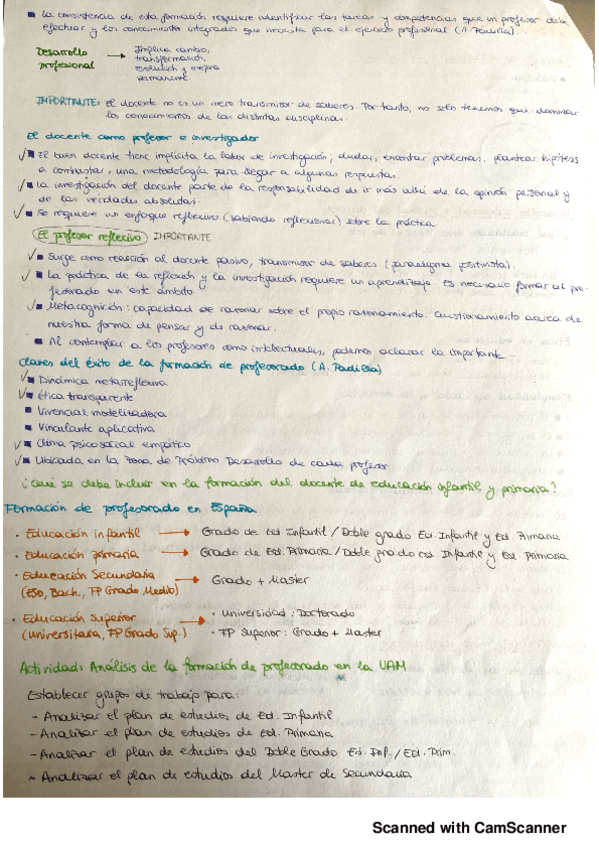 La consistencia de esta formación requiere identificar las tareas y competencias que un profesor debe
efectuar y los conocimientos integrados que necesita para el ejercicio profesional (A. Padilla).
Desarrollo profesional → Implica cambio,
transformación,
evolución y mejora
permanente.
IMPORTANTE: El docente no es un mero transmisor de saberes. Por tanto, no solo tenemos que dominar
los conocimientos de las distintas disciplinas.
El docente como profesor e investigador
El buen docente tiene implícita la labor de investigación; dudar, encontrar problemas, plantear hipótesis
a contrastar, una metodología para llegar a algunas respuestas.
La investigación del docente parte de la responsabilidad de ir más allá de la opinión personal y
de las verdades absolutas.
Se requiere un enfoque reflexivo (sabiendo reflexionar) sobre la práctica.
El profesor reflexivo IMPORTANTE
Surge como reacción al docente pasivo, transmisor de saberes (paradigma positivista).
La práctica de la reflexión y la investigación requiere un aprendizaje. Es necesario formar al pro-
fesorado en este ámbito.
Metacognición: capacidad de razonar sobre el propio razonamiento. Cuestionamiento acerca de
nuestra forma de pensar y de razonar.
Al contemplar a los profesores como intelectuales, podemos aclarar la importante -
Claves del éxito de la formación de profesorado (A. Padilla)
Dinámica metarreflexiva
Ética transparente
Vivencial modelizadora
Vinculante aplicativa
Clima psicosocial empático
Ubicada en la Zona de Próximo Desarrollo de cada profesor
¿Qué se debe incluir en la formación del docente de educación infantil y primaria?
Formación de profesorado en España
· Educación infantil → Grado de Ed Infantil / Doble grado Ed. Infantil y Ed. Primaria
· Educación primaria → Grado de Ed. Primaria / Doble grado Ed. Infantil y Ed. Primaria
· Educación Secundaria
(ESO, Bach., FP Grado Medio) → Grado + Master
· Educación Superior
(Universitaria, FP Grado Sup.) → • Universidad: Doctorado
• FP Superior: Grado + Master
Actividad: Análisis de la formación de profesorado en la UAM
Establecer grupos de trabajo para:
- Analizar el plan de estudios de Ed. Infantil
- Analizar el plan de estudios de Ed. Primaria
- Analizar el plan de estudios del Doble Grado Ed. Inf. / Ed. Prim.
- Analizar el plan de estudios del Master de Secundaria
Scanned with CamScanner